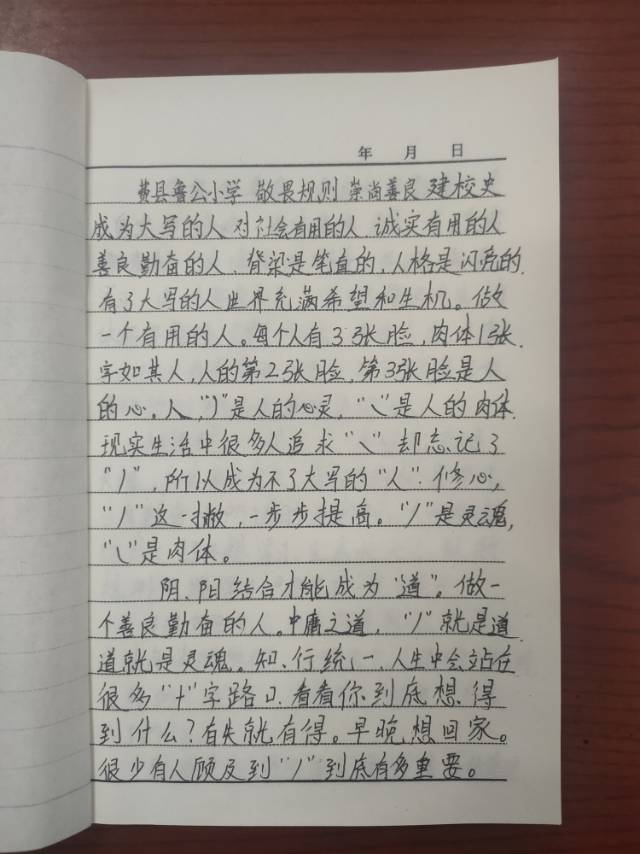 年 月 日
费县鲁公小学 敬畏规则 崇尚善良 建校史
成为大写的人 对社会有用的人、诚实有用的人
善良勤奋的人、脊梁是笔直的,人格是闪亮的.
有了大写的人世界充满希望和生机。做
一个有用的人。每个人有33张脸,肉体1张.
字如其人,人的第2张脸,第3张脸是人
的心。人,"丿"是人的心灵,"㇏"是人的肉体.
现实生活中很多人追求"㇏"却忘记了
"丿",所以成为不了大写的"人":修心,
"丿"这一撇,一步步提高。"丿"是灵魂,
"㇏"是肉体。
阴、阳结合才能成为"道"。做一
个善良勤奋的人。中庸之道,"丿"就是道
道就是灵魂。知、行统一、人生中会站在
很多"十"字路口、看看你到底想得
到什么?有失就有得。早晚想回家。
很少有人顾及到"丿"到底有多重要。